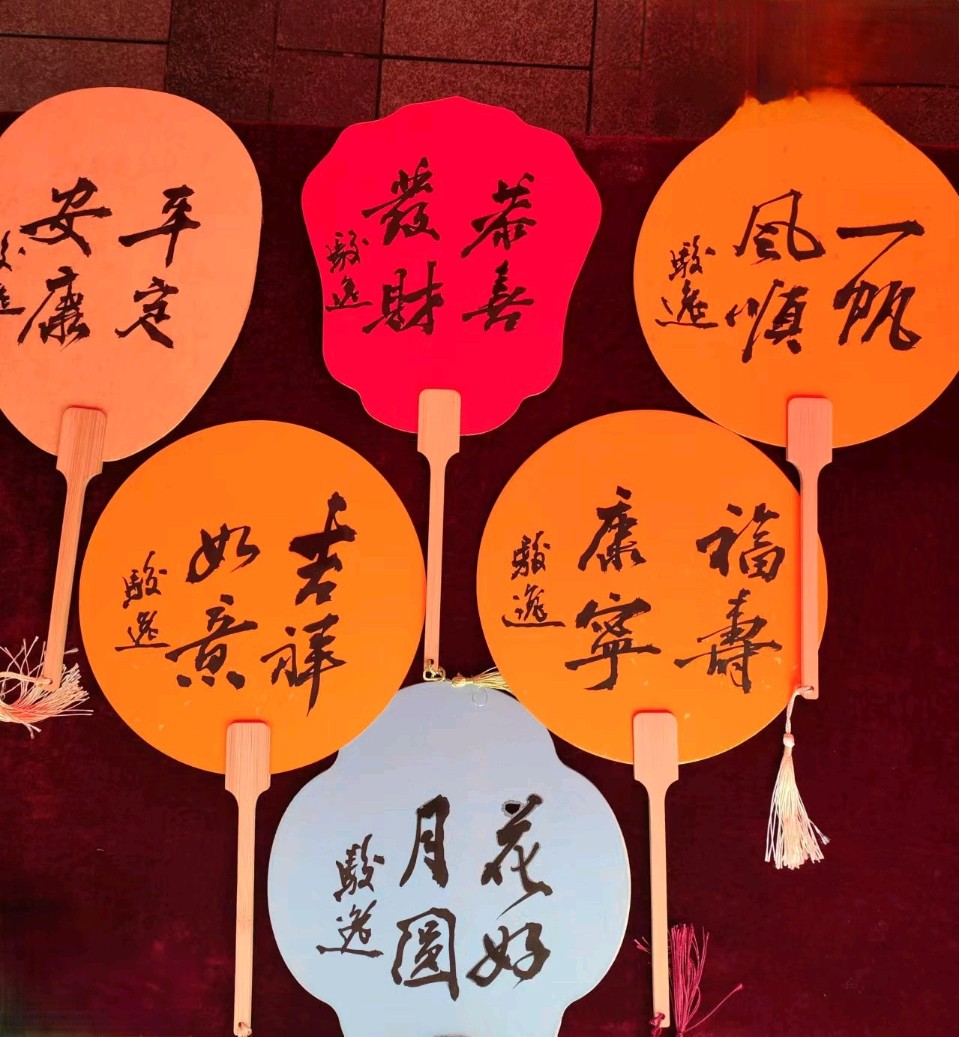 平定
安康
恭喜
發財
駿逸
一帆
風順
駿逸
吉祥
如意
駿逸
福壽
康寧
駿逸
花好
月圓
駿逸